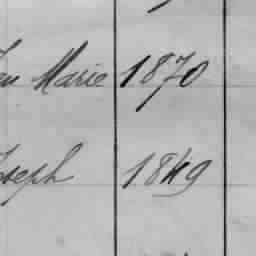 Marie 1870
Joseph 1849